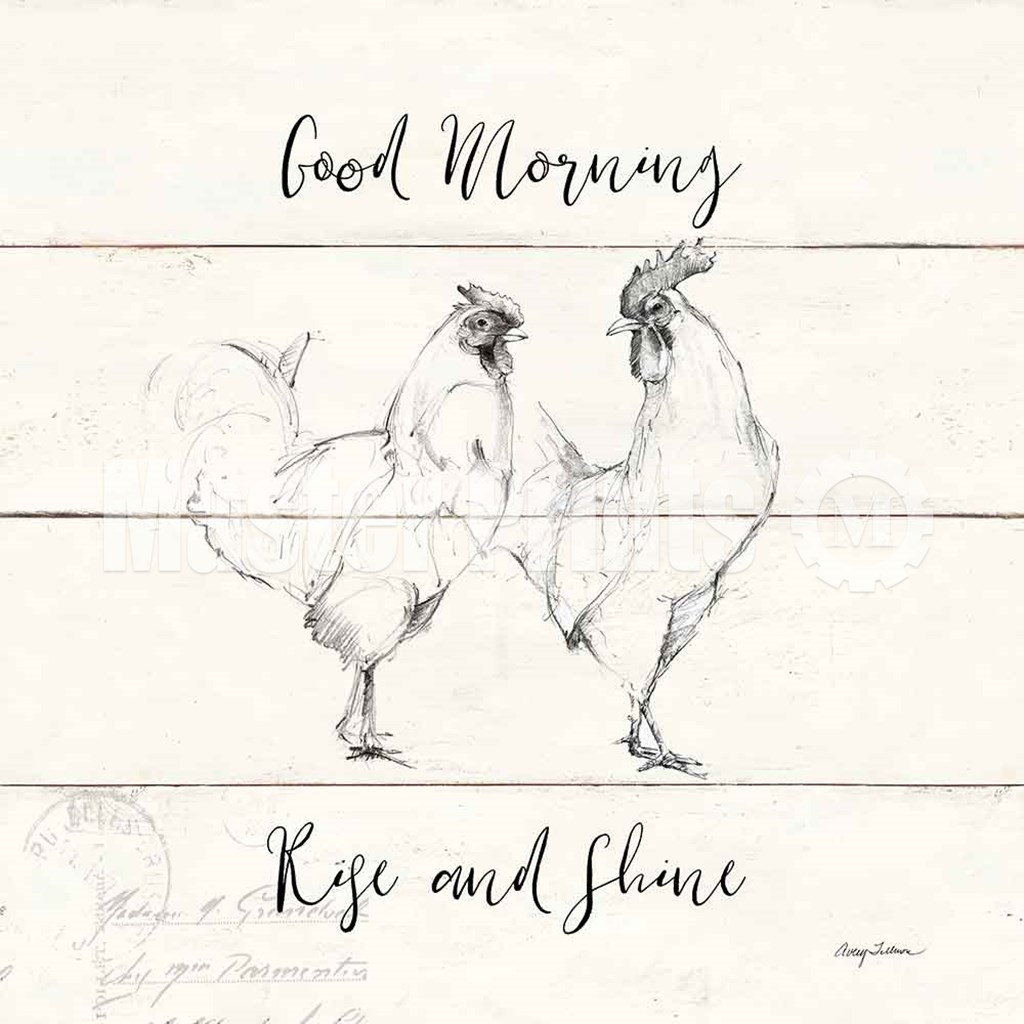 Good Morning
MasterPrints
Rise and Shine
Madame
Parmentier
Avery Tillmon